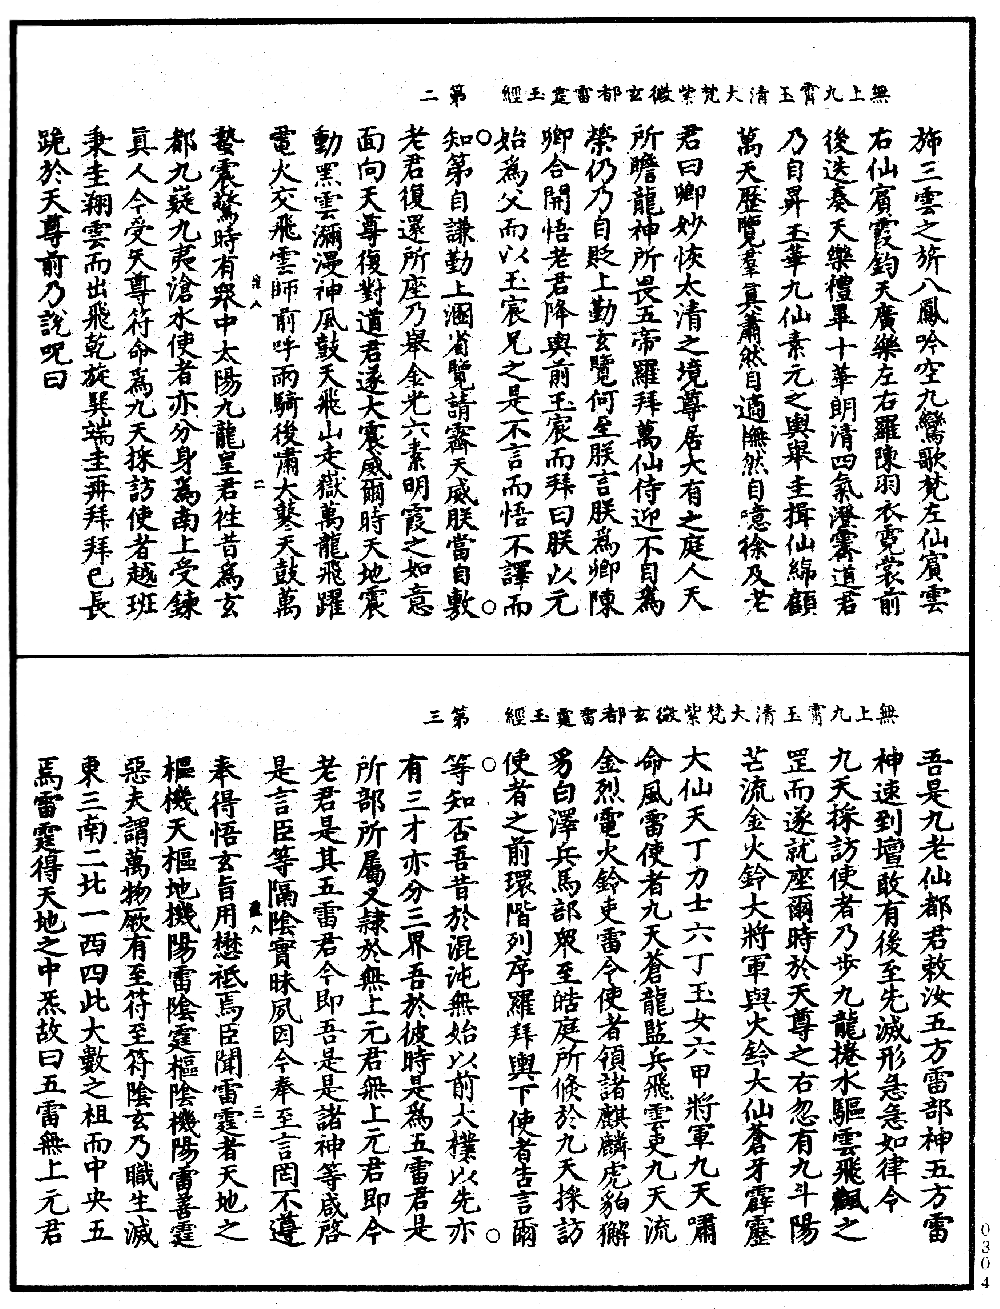 無上九霄玉清大梵紫微玄都雷霆玉經　第二
旆三雲之旂八鳳吟空九鸞歌梵左仙賓雲
右仙賓霞鈞天廣樂左右羅陳羽衣霓裳前
後迭奏天樂禮畢十華朗清四氣澄霽道君
乃自昇玉華九仙素元之輿舉圭揖仙綿顧
萬天歷覽羣真蕭然自適憮然自噫徐及老
君曰卿妙恢太清之境尊居大有之庭人天
所瞻龍神所畏五帝羅拜萬仙侍迎不自為
榮仍乃自貶上勤玄覽何至朕言朕為卿陳
卿合開悟老君降輿前玉宸而拜曰朕以元
始為父而以玉宸兄之是不言而悟不譯而
知第自謙勤上溷省覽請霽天威朕當自敷
老君復還所座乃舉金光六素明霞之如意
面向天尊復對道君遂大震威爾時天地震
動黑雲瀰漫神風鼓天飛山走嶽萬龍飛躍
電火交飛雲師前呼雨騎後嘯大鼕天鼓萬
蟄震驚時有眾中太陽九龍皇君往昔為玄
都九嶷九夷滄水使者亦分身為南上受鍊
真人今受天尊符命為九天採訪使者越班
秉圭翔雲而出飛乾旋巽端圭再拜拜已長
跪於天尊前乃說呪曰
無上九霄玉清大梵紫微玄都雷霆玉經　第三
吾是九老仙都君敕汝五方雷部神五方雷
神速到壇敢有後至先滅形急急如律令
九天採訪使者乃步九龍捲水驅雲飛飆之
罡而遂就座爾時於天尊之右忽有九斗陽
芒流金火鈴大將軍與火鈴大仙蒼牙霹靂
大仙天丁力士六丁玉女六甲將軍九天嘯
命風雷使者九天蒼龍監兵飛雲吏九天流
金烈電火鈴吏雷令使者領諸麒麟虎豹獬
豸白澤兵馬部眾至皓庭所倐於九天採訪
使者之前環階列序羅拜輿下使者告言爾
等知否吾昔於混沌無始以前大樸以先亦
有三才亦分三界吾於彼時是為五雷君是
所部所屬又隸於無上元君無上元君即今
老君是其五雷君今即吾是是諸神等咸啓
是言臣等隔陰實昧夙因今奉至言罔不遵
奉得悟玄旨用懋祗焉臣聞雷霆者天地之
樞機天樞地機陽雷陰霆樞陰機陽雷善霆
惡夫謂萬物厥有至符至符陰玄乃職生滅
東三南二北一西四此大數之祖而中央五
焉雷霆得天地之中炁故曰五雷無上元君
0304